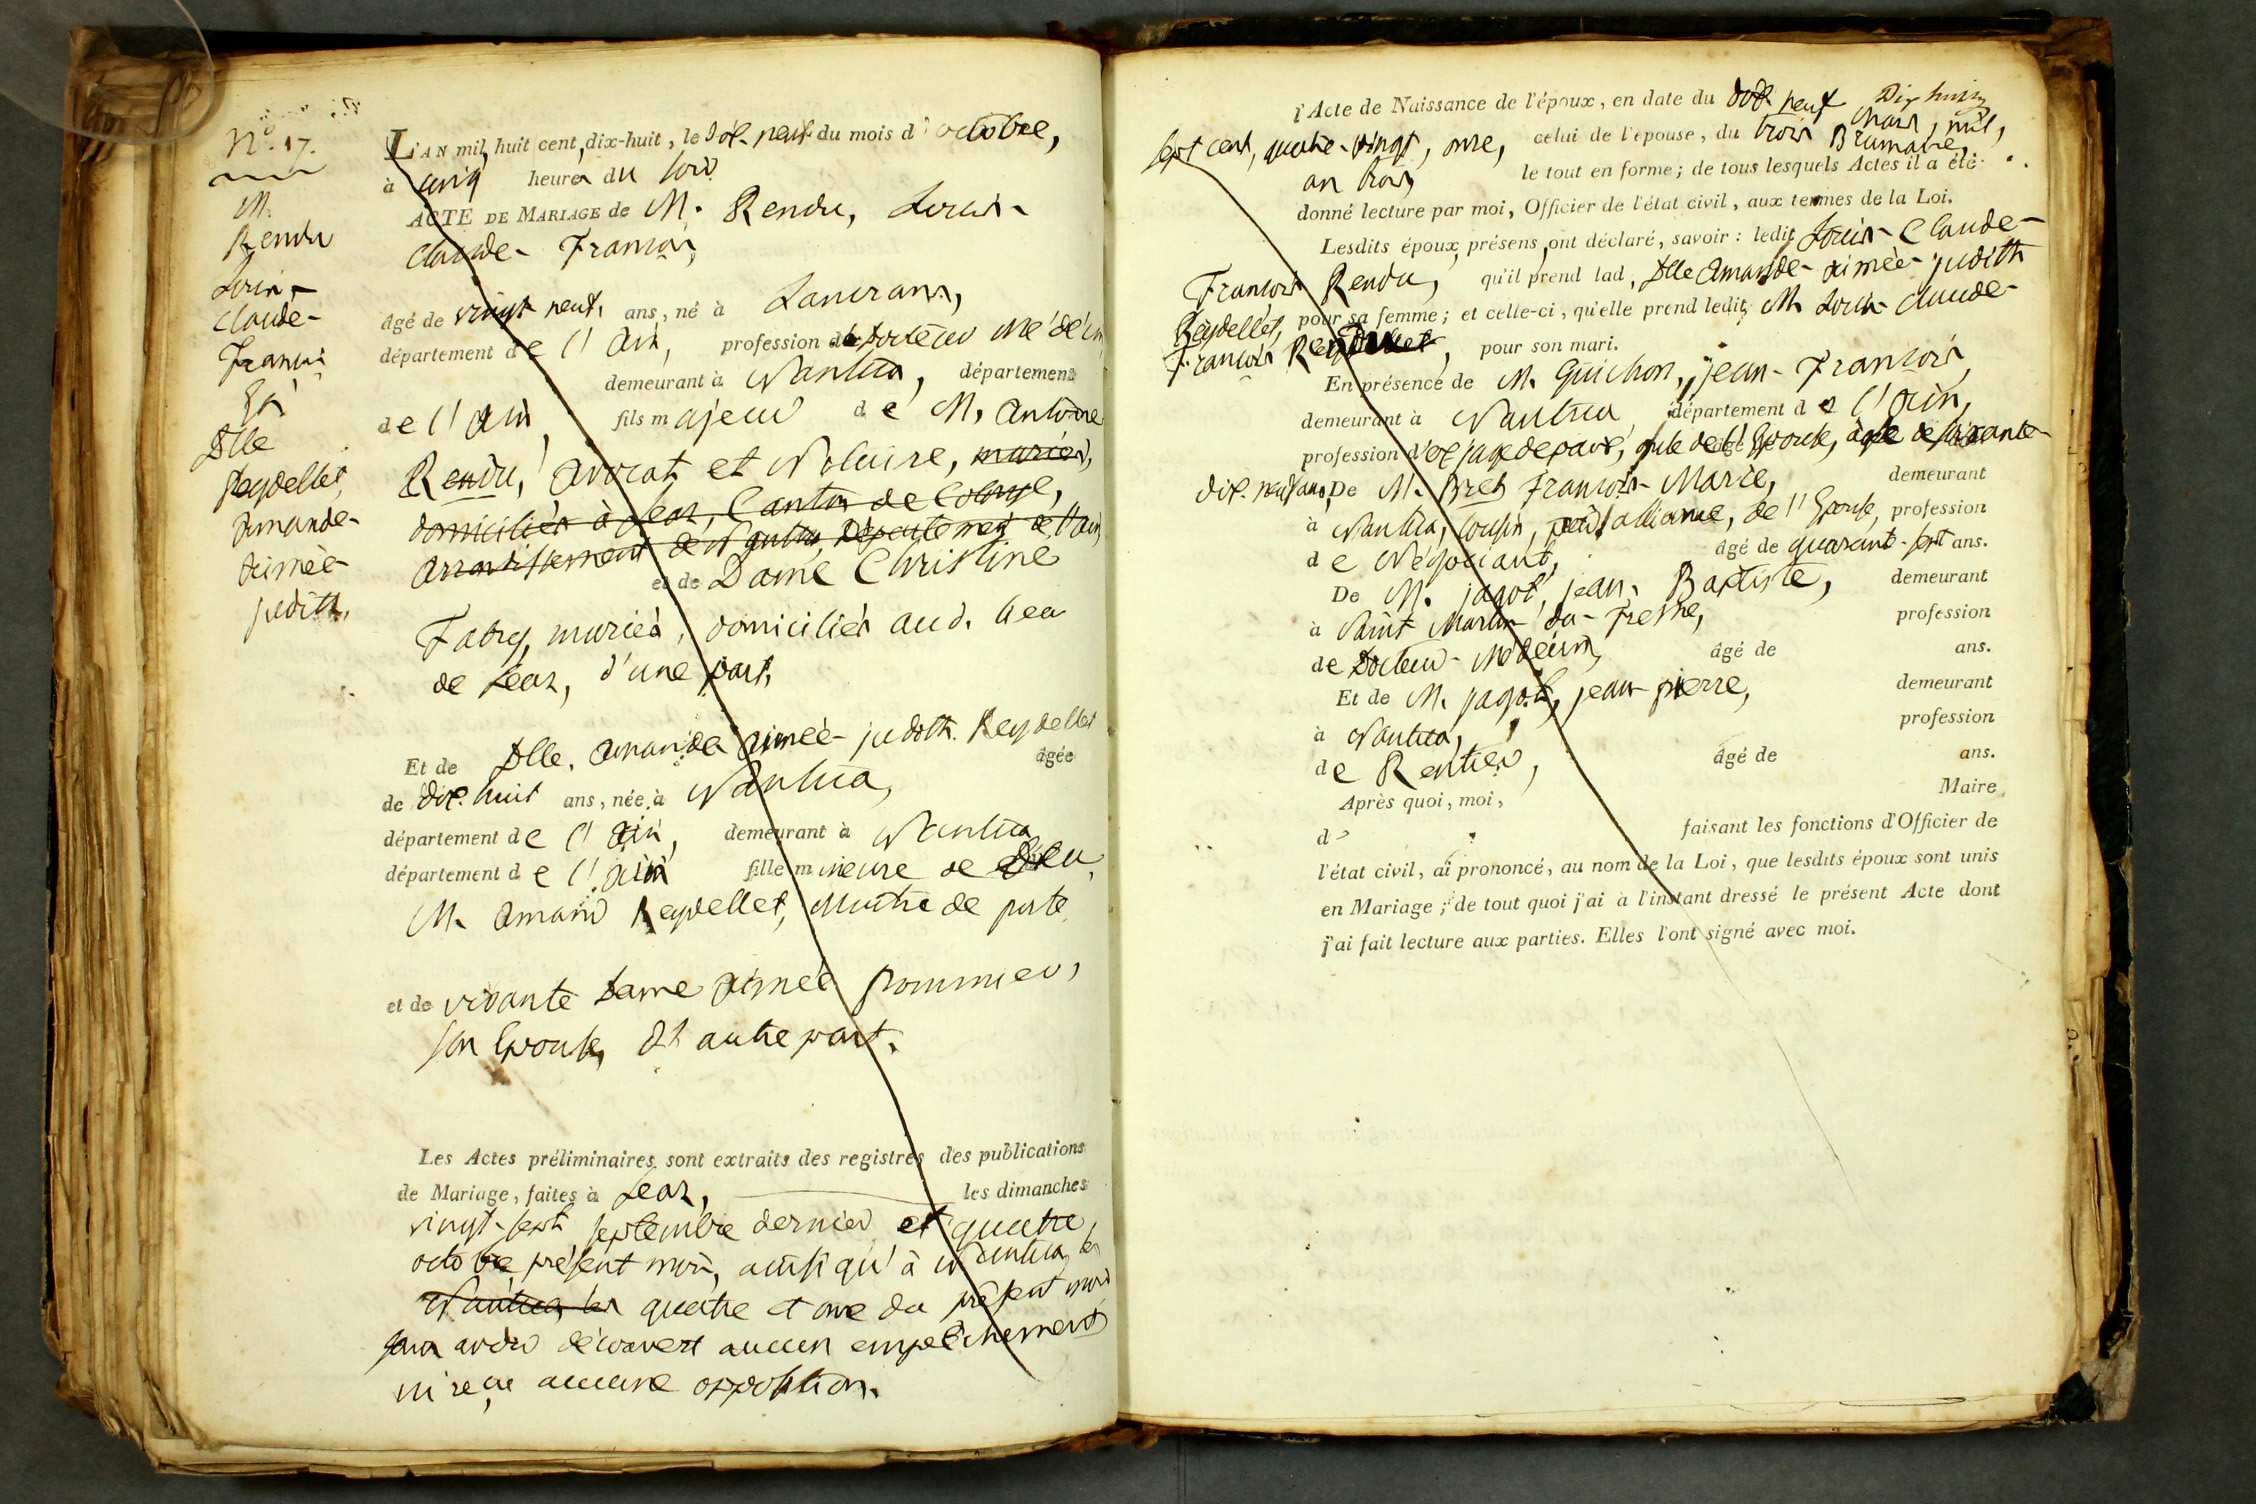 No. 17.
M.
Rendu
Louis-
Claude-
François
Et
Dlle
Reydellet,
Amande-
Aimée-
judith.
L'AN mil, huit cent, dix-huit, le dix-neuf du mois d'octobre,
à cinq heures du soir
ACTE DE MARIAGE de M. Rendu, Louis-
Claude-François,
âgé de vingt neuf, ans, né à Lancrans,
département de l'Ain, profession de Docteur Médécin
demeurant à Nantua, département
de l'Ain, fils majeur de M. Antoine
Rendu, avocat et Notaire, mariés,
domiciliés à Leaz, Canton de Colonge,
arrondissement de Nantua, département de l'Ain,
et de Dame Christine
Fabry, mariés, domiciliés aud. lieu
de Leaz, d'une part,
Et de Dlle. Amande-Aimée-judith. Reydellet
âgée
de dix-huit ans, née à Nantua,
département de l'Ain, demeurant à Nantua
département de l'Ain fille mineure de
M. Amand Reydellet, Maître de poste
et de vivante Dame Aimée Pommier,
son Epouse, d'autre part.
Les Actes préliminaires sont extraits des registres des publications
de Mariage, faites à Leaz, les dimanches
vingt-sept septembre dernier et quatre
octobre présent mois, ainsi qu'à Nantua, les
Nantua, les quatre et onze du présent mois
sans avoir découvert aucun empêchement
ni reçu aucune opposition.
l'Acte de Naissance de l'époux, en date du dix neuf Mars, mil,
sept cent, quatre-vingt, onze, celui de l'épouse, du trois Brumaire,
an trois, le tout en forme; de tous lesquels Actes il a été
donné lecture par moi, Officier de l'état civil, aux termes de la Loi.
Lesdits époux, présens, ont déclaré, savoir: ledit Louis-Claude-
François Rendu, qu'il prend lad. Dlle Amande-aimée-judith
Reydellet, pour sa femme; et celle-ci, qu'elle prend ledit M. Louis-Claude-
François pour son mari.
En présence de M. Guichon, jean-François,
demeurant à Nantua département de l'Ain,
profession d'ex juge de paix, de l'Epouse, âgé de soixante
dix-neuf ans, De M. Bret François-Marie, demeurant
à Nantua, Cousin, par alliance, de l'Epouse, profession
de Négociant, âgé de quarante-sept ans.
De M. jagot, jean-Baptiste, demeurant
à Saint Martin-du-Fresne, profession
de Docteur-Médecin, âgé de ans.
Et de M. jagot, jean-pierre, demeurant
à Nantua, profession
de Rentier, âgé de ans.
Après quoi, moi, Maire
d faisant les fonctions d'Officier de
l'état civil, ai prononcé, au nom de la Loi, que lesdits époux sont unis
en Mariage; de tout quoi j'ai à l'instant dressé le présent Acte dont
j'ai fait lecture aux parties. Elles l'ont signé avec moi.